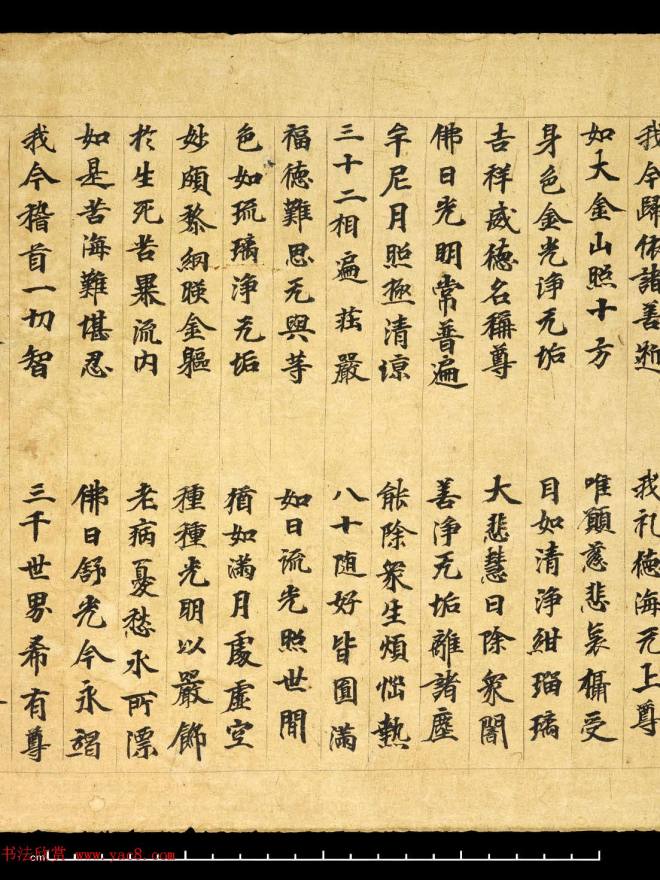 我今歸依諸善逝 我礼德海无上尊
如大金山照十方 唯願慈悲哀攝受
身色金光淨无垢 目如清淨紺瑠璃
吉祥威德名稱尊 大悲慧日除衆闇
佛日光明常普遍 善淨无垢離諸塵
牟尼月照極清涼 能除衆生煩惱熱
三十二相遍莊嚴 八十随好皆圓滿
福德難思无與等 如日流光照世間
色如琉璃淨无垢 猶如滿月處虛空
妙頗黎網暎金軀 種種光明以嚴飾
於生死苦暴流內 老病憂愁水所漂
如是苦海難堪忍 佛日舒光令永竭
我今稽首一切智 三千世界希有尊
cm
书法欣赏 www.yac8.com